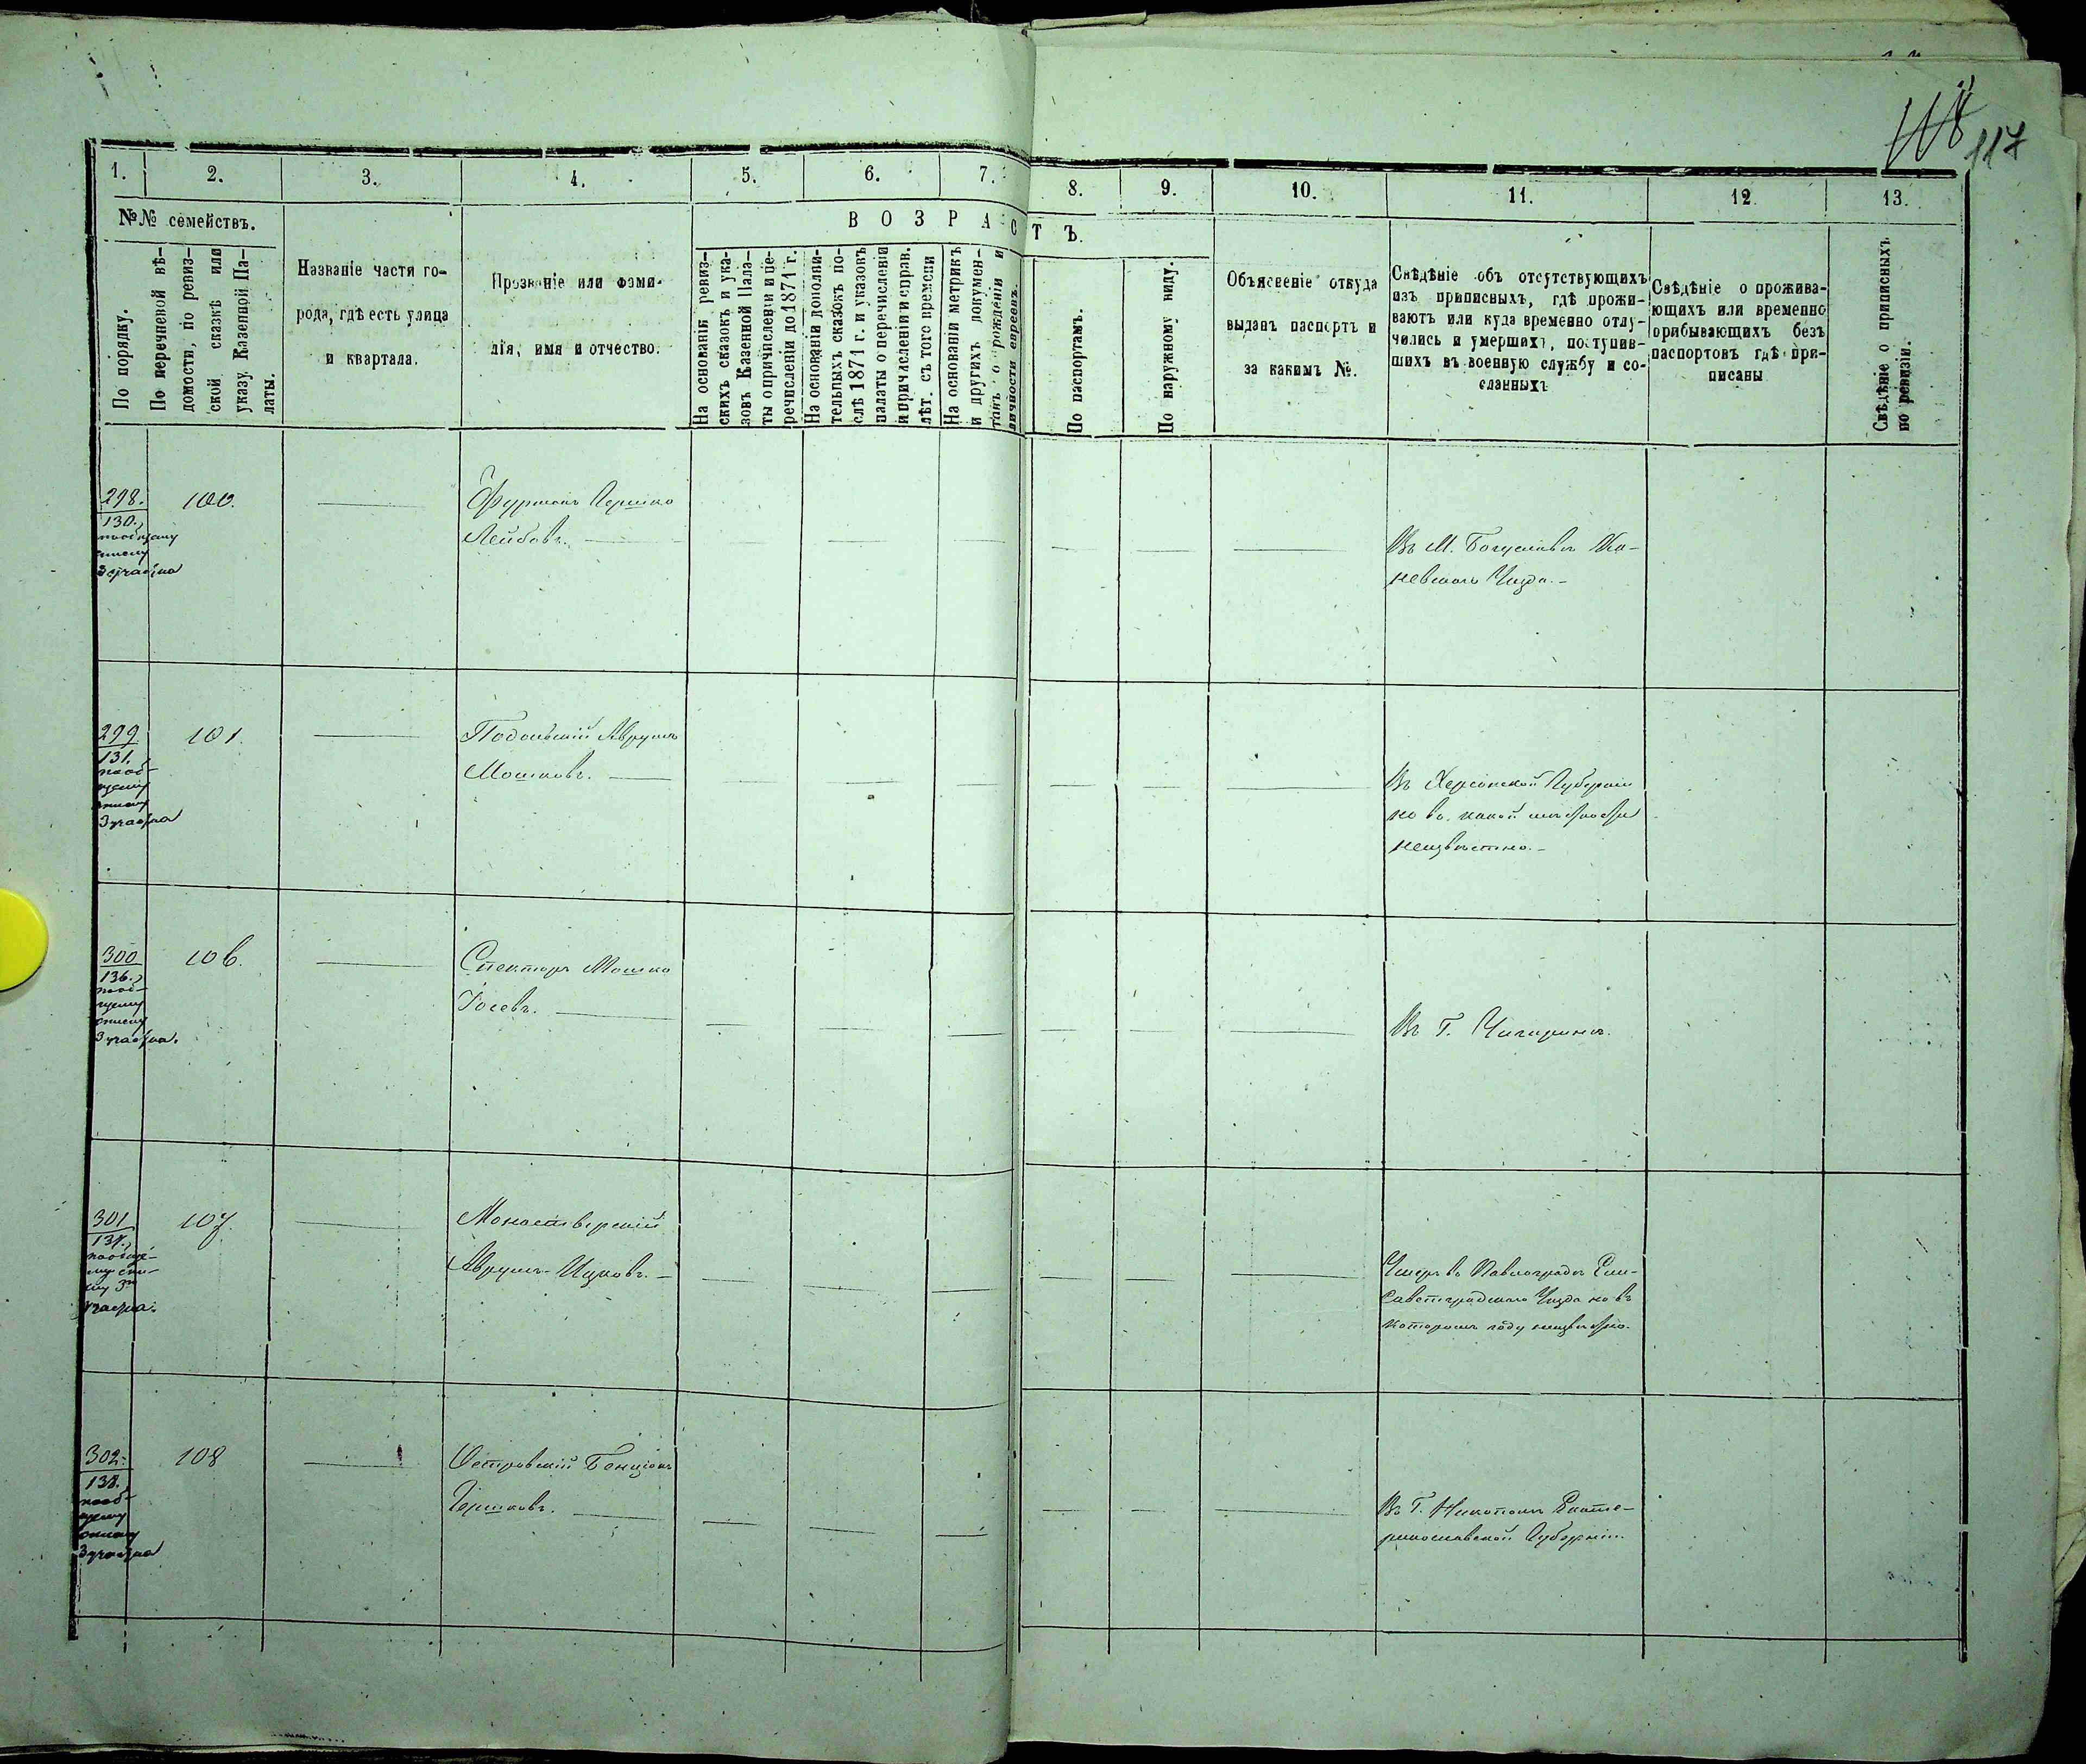 118 117
1. 2. 3. 4. 5. 6. 7. 8. 9. 10. 11. 12 13.
№№ семействъ.
ВОЗРАСТЪ.
По порядку.
По перечневой вѣ-
домости, по ревиз-
ской сказкѣ или
указу Казенной Па-
латы.
Названіе части го-
рода, гдѣ есть улица
и квартала.
Прозваніе или фами-
лія, имя и отчество.
На основаніи ревиз-
скихъ сказокъ и ука-
зовъ Казенной Пала-
ты о причисленіи и пе-
речисленіи до 1871 г.
На основаніи дополни-
тельныхъ сказокъ по-
слѣ 1871 г. и указовъ
палаты о перечисленіи
и причисленіи и справ.
лѣт. съ того времени
На основаніи метрикъ
и другихъ докумен-
танъ о рожденіи и
личности евреевъ.
По паспортамъ.
По наружному виду.
Объясненіе откуда
выданъ паспортъ и
за какимъ №.
Свѣдѣніе объ отсутствующихъ
изъ приписныхъ, гдѣ прожи-
ваютъ или куда временно отлу-
чились и умершихъ, поступив-
шихъ въ военную службу и со-
сланныхъ
Свѣдѣніе о прожива-
ющихъ или временно
прибывающихъ безъ
паспортовъ гдѣ при-
писаны
Свѣдѣніе о приписныхъ
по ревизіи.
298. 100. Фурманъ Гершко
130.
по общему
списку
3 участка
Лейбовъ.
Въ М. Богуславѣ Ка-
невскаго Уѣзда.-
299 101. Подольскій Аврумъ
131.
по об-
щему
списку
3 участка
Мошковъ.
Въ Херсонской Губерніи
но въ какой мѣстности
неизвѣстно.-
300 106. Спекторъ Мошко
136.
по об-
щему
списку
3 участка.
Іосевъ.
Въ Г. Чигиринѣ.
301 107. Монастверскій
137.
по обще-
му спи-
ску 3го
участка.
Аврумъ-Ицковъ.-
Умеръ въ Павлоградѣ Ели-
саветградскаго Уѣзда но въ
которомъ году неизвѣстно.
302. 108 Островскій Бенціонъ
138.
по об-
щему
списку
3 участка
Гершковъ.
Въ Г. Никополѣ Екате-
ринославской Губерніи.